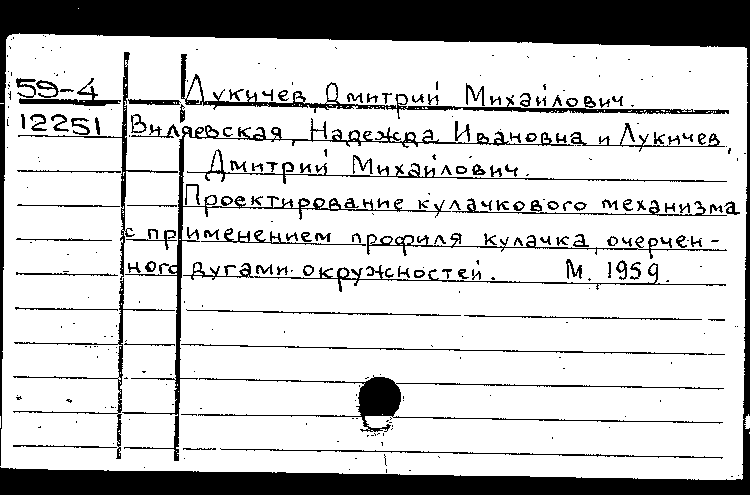 59-4 Лукичев, Дмитрий Михайлович.
12251 Виляевская, Надежда Ивановна и Лукичев,
Дмитрий Михайлович.
Проектирование кулачкового механизма
с применением профиля кулачка, очерчен-
ного дугами окружностей. М., 1959.